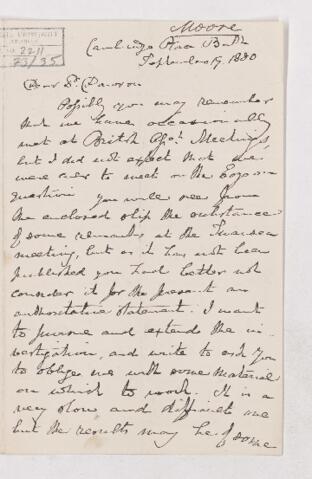 Moore
2211
73/35
Cambridge Place Bath
September 9 1880
Dear Dr. Dawson
Possibly you may remember
that we have occasionally
met at British Assn. Meetings,
but I did not expect that we
were ever to meet on the Eozoon
question You will see from
the enclosed slip the substance
of some remarks at the Swansea
meeting, but as it has not been
published you had better not
consider it for the present an
authoritative statement. I want
to pursue and extend the in-
vestigation, and write to ask you
to oblige me with some material
on which to work. It is a
very slow and difficult one
but the results may be of some